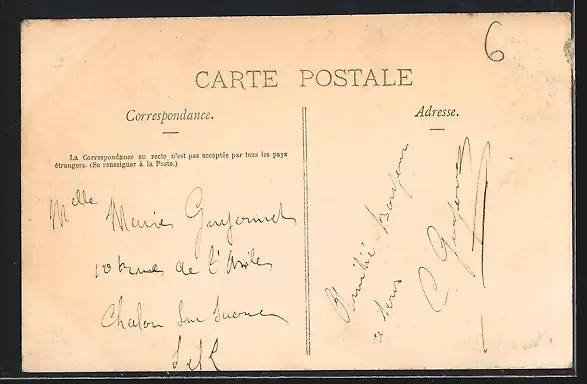 6
CARTE POSTALE
Correspondance.
La Correspondance au recto n'est pas acceptée par tous les pays
étrangers. (Se renseigner à la Poste.)
Melle Marie Guyonnet
10 de l'Asile
Chalon sur Saone
S et L
Adresse.
Amitié
C.